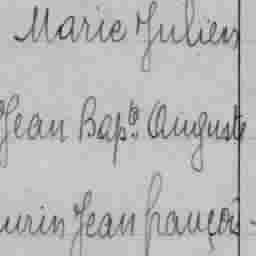 Marie Julien
Jean Bapte. Auguste
urin Jean françois